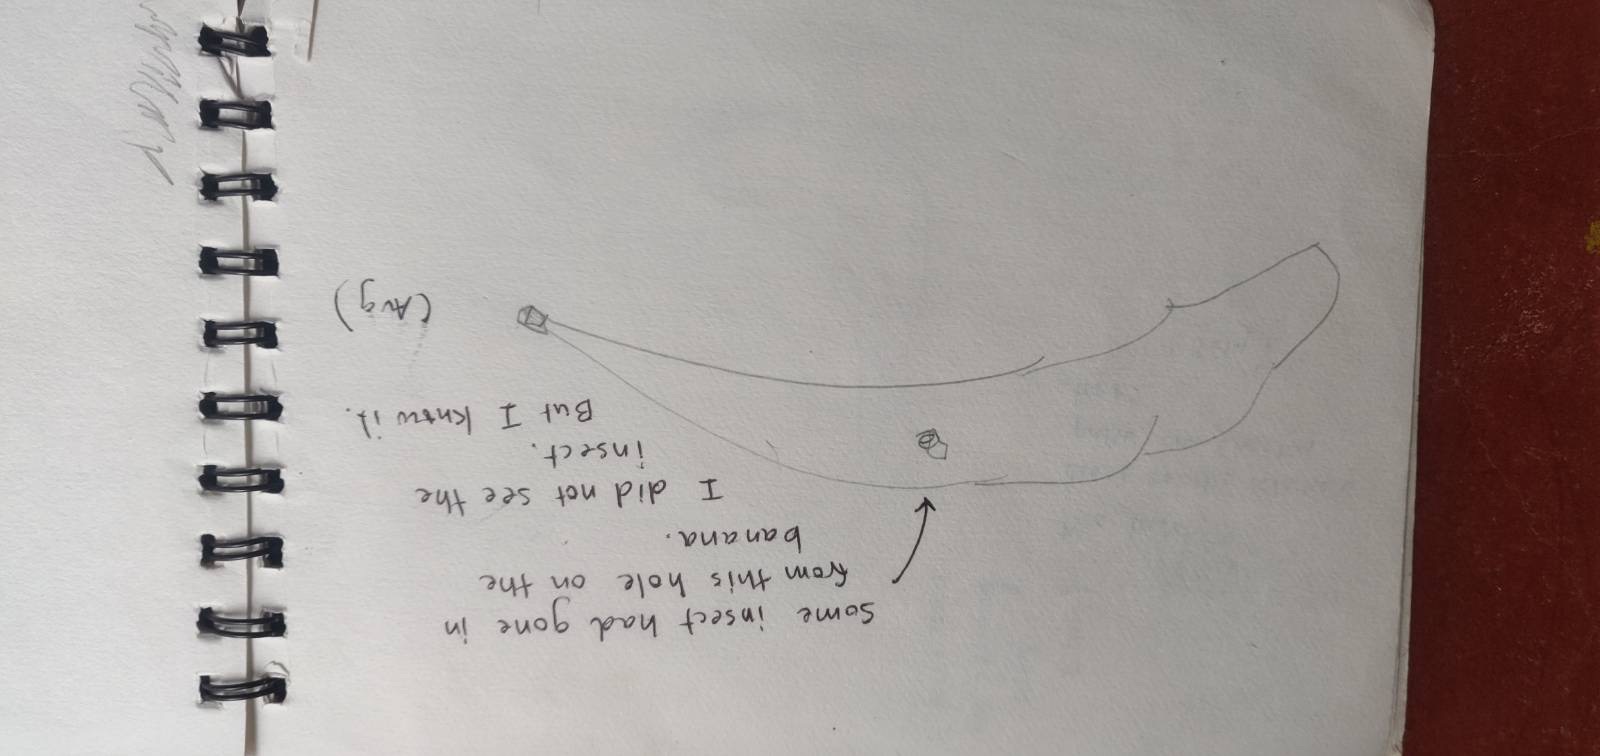 Some insect had gone in
from this hole on the
banana.
I did not see the
insect.
But I know it.
(Avg)